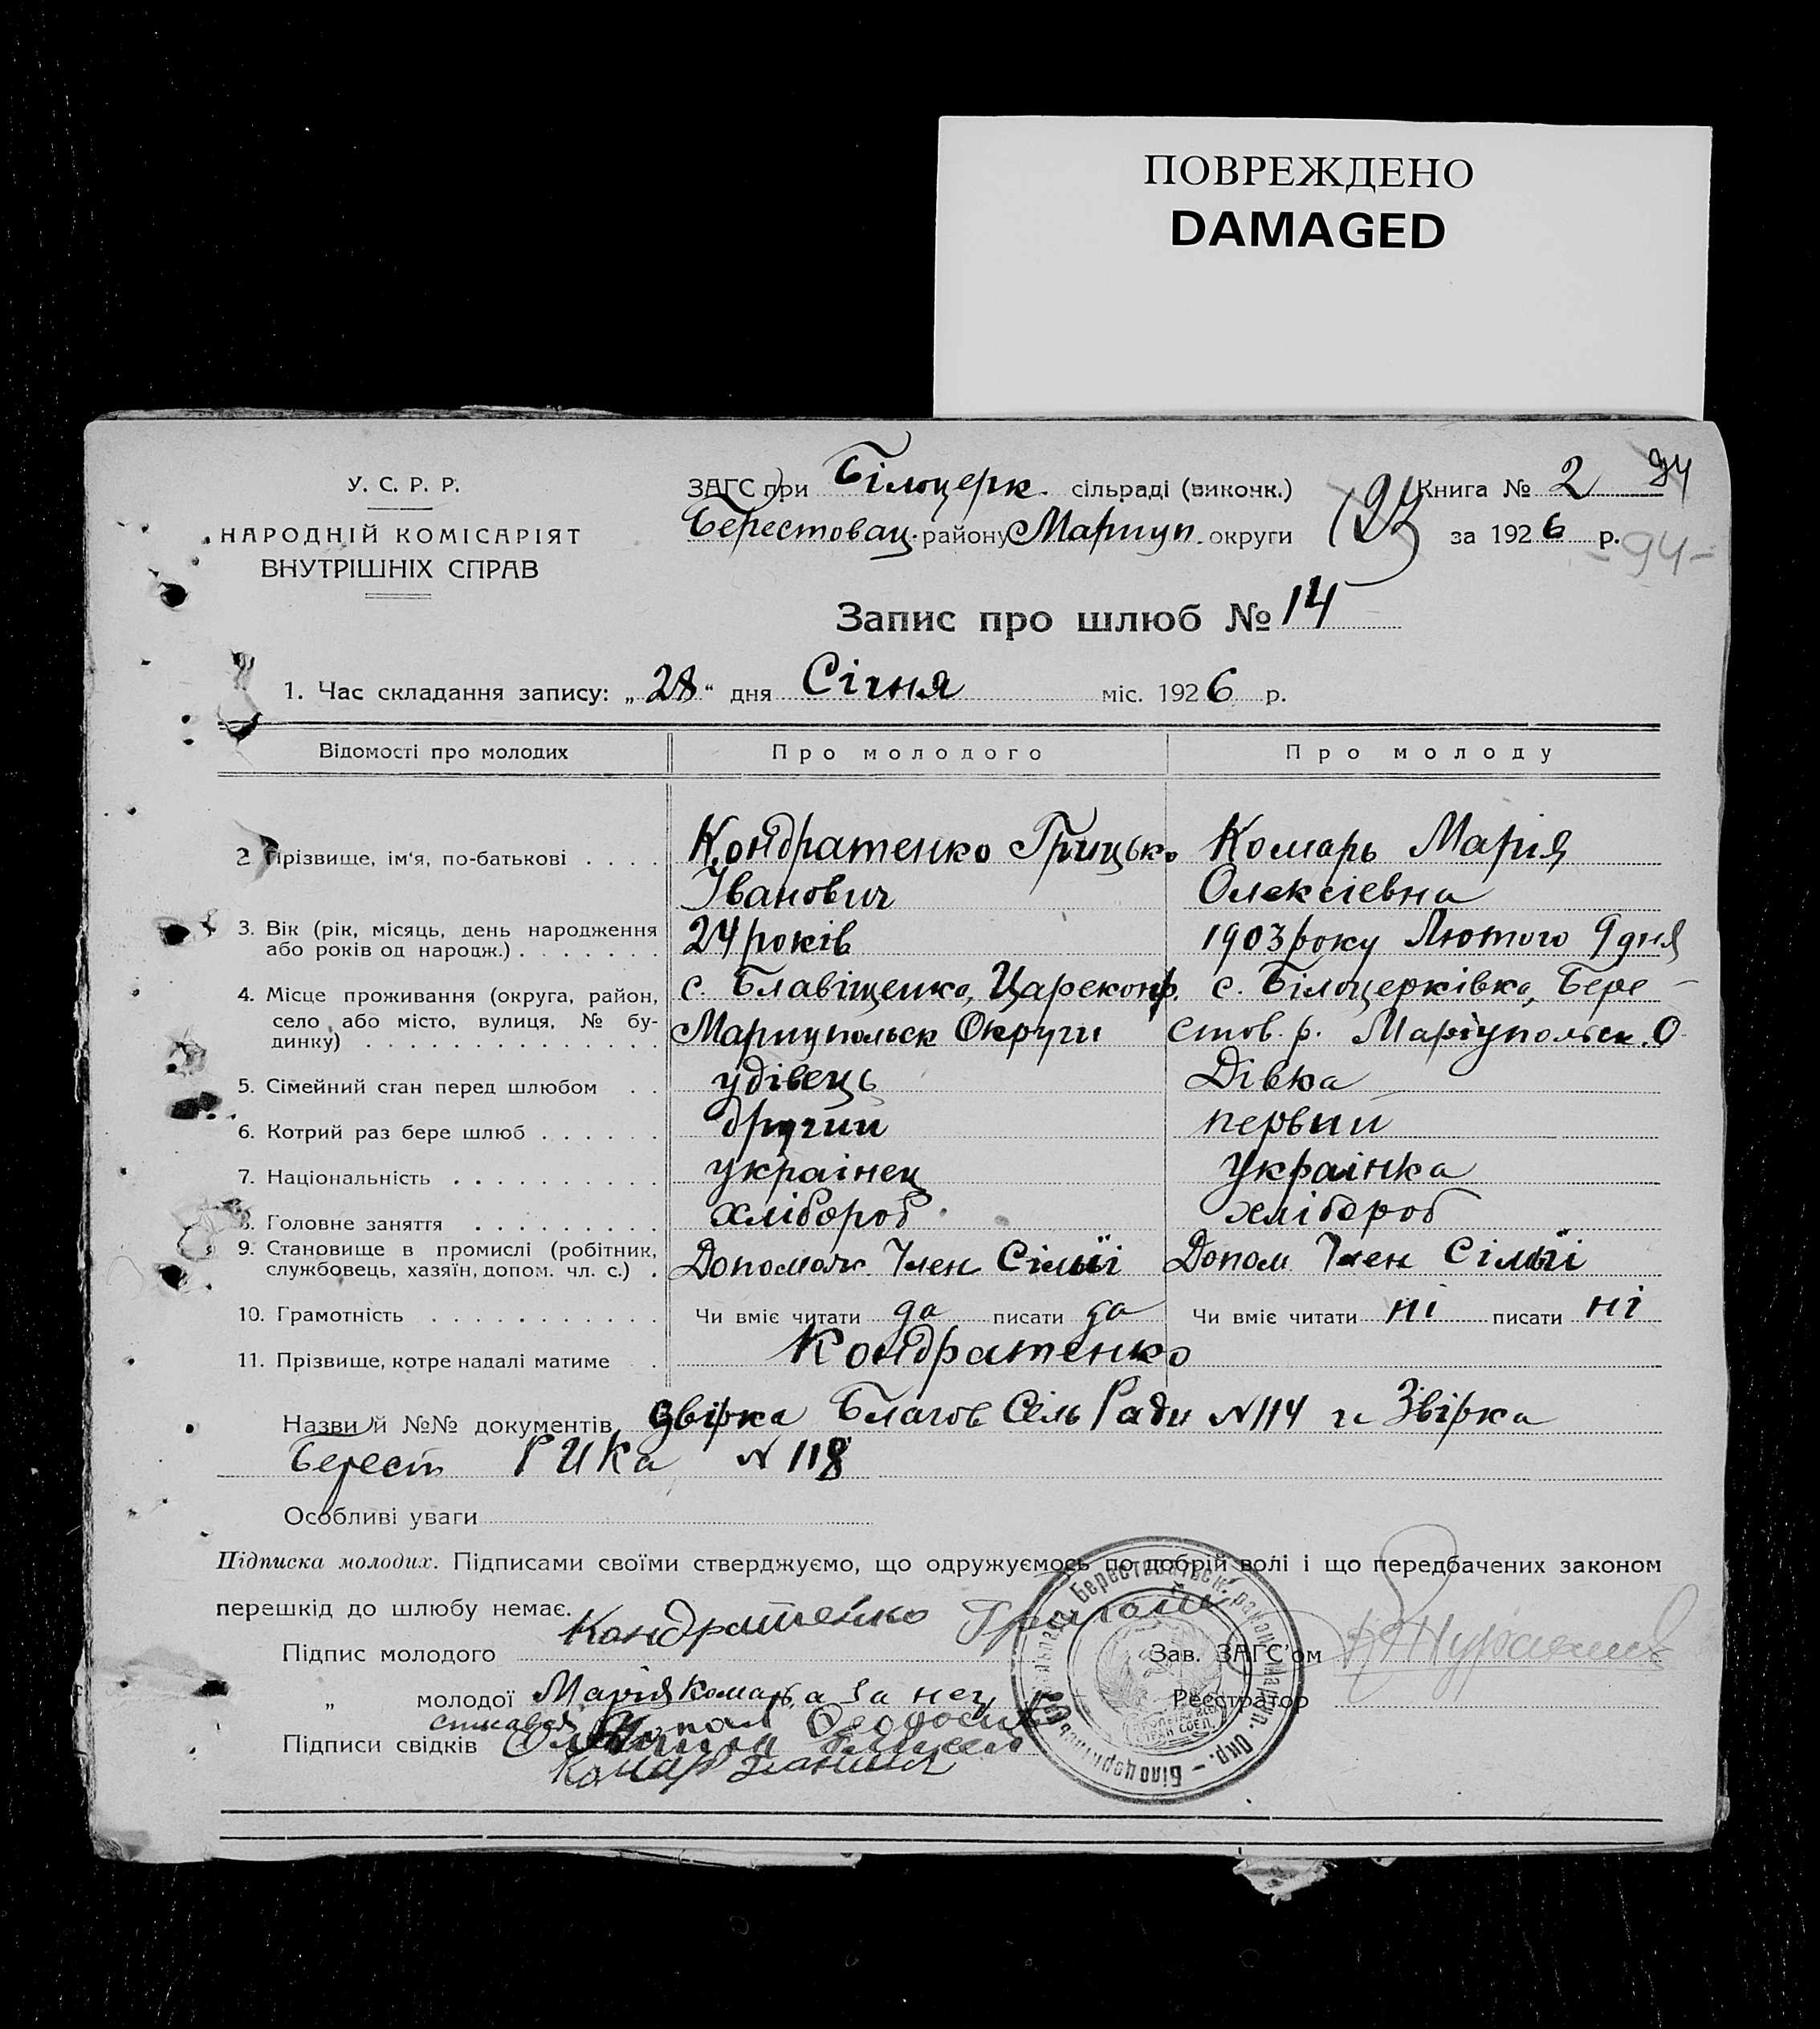 ПОВРЕЖДЕНО
DAMAGED
У. С. Р. Р.
НАРОДНІЙ КОМІСАРІЯТ
ВНУТРІШНІХ СПРАВ
ЗАГС при Білоцерк. сільраді (виконк.)
Берестовац. району Мариуп. округи
193
Книга № 2 94
за 1926 р.
- 94 -
Запис про шлюб № 14
1. Час складання запису: „28“ дня Січня міс. 1926 р.
Відомості про молодих Про молодого Про молоду
2. Прізвище, ім‘я, по-батькові . . . . Кондратенко Грицько Комарь Марія
Іванович Олексіевна
3. Вік (рік, місяць, день народження 24 років 1903 року Лютого 9 дня
або років од народж.) . . . . . . .
4. Місце проживання (округа, район, с. Блавіщенко, Цареконф. с. Білоцерківко, Бере-
село або місто, вулиця, № бу- Мариупольск Округи стов. р. Маріупольск. О
динку) . . . . . . . . . . . . . .
5. Сімейний стан перед шлюбом . . удівець Дівка
6. Котрий раз бере шлюб . . . . . . другий первий
7. Національність . . . . . . . . . . украінец украінка
8. Головне заняття . . . . . . . . . хлібороб хлібороб
9. Становище в промислі (робітник, Допомож. Член Сімьїі Допом Член Сімьїі
службовець, хазяїн, допом. чл. с.) .
10. Грамотність . . . . . . . . . . . Чи вміє читати да писати да Чи вміє читати ні писати ні
11. Прізвище, котре надалі матиме . Кондратенко
Назви й №№ документів Звірка Благов Сіль Ради №114 и Звірка
Берест РИКа №118
Особливі уваги
Підписка молодих. Підписами своїми стверджуємо, що одружуємось по добрій волі і що передбачених законом
перешкід до шлюбу немає.
Підпис молодого Кондратенко
Зав. ЗАГС‘ом
„ молодої Марія Комарь, а за неи
Реєстратор
Підписи свідків
Комар
Берестоватьск. район Маріуп. Окр. - Білоцерківська